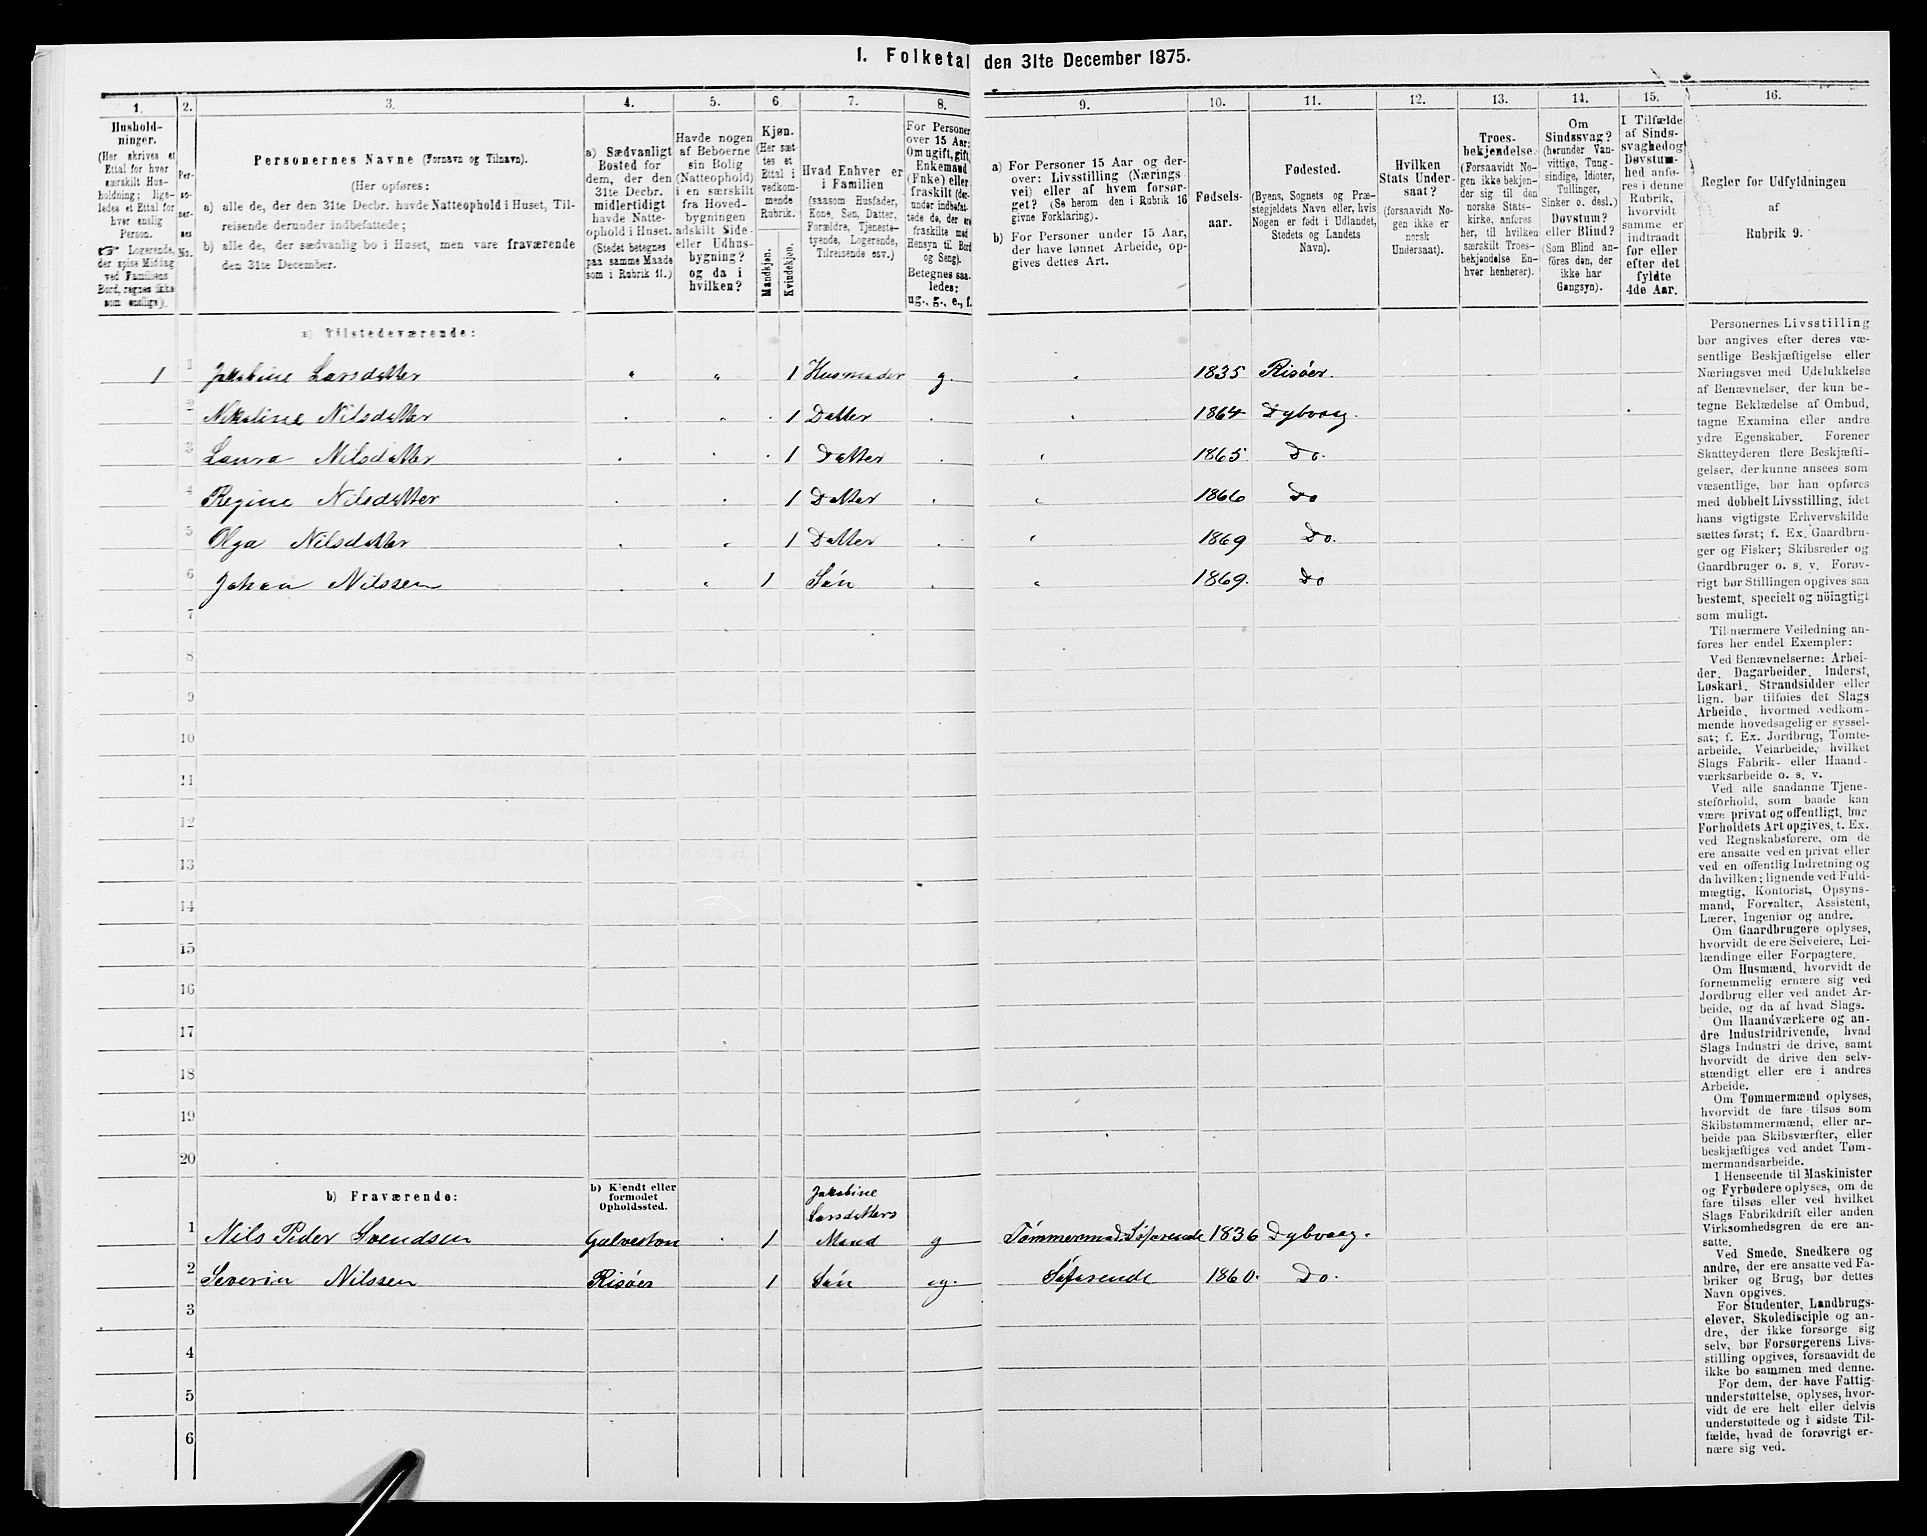 1. Folketal den 31te December 1875.
1. 2. 3. 4. 5. 6. 7. 8. 9. 10. 11. 12. 13. 14. 15. 16.
Hushold-
ninger.
(Her skrives et
Ettal for hver
særskilt Hus-
holdning; lige-
ledes et Ettal for
hver enslig
Person.
☞ Logerende,
der spise Middag
ved Familiens
Bord, regnes ikke
som enslige).
Per-
so-
ner-
nes
No.
Personernes Navne (Fornavn og Tilnavn).
(Her opføres:
a) alle de, der den 31te Decbr. havde Natteophold i Huset, Til-
reisende derunder indbefattede;
b) alle de, der sædvanlig bo i Huset, men vare fraværende
den 31te December.
a) Sædvanligt
Bosted for
dem, der den
31te Decbr.
midlertidigt
havde Natte-
ophold i Huset.
(Stedet betegnes
paa samme Maade
som i Rubrik 11.)
Havde nogen
af Beboerne
sin Bolig
(Natteophold)
i en særskilt
fra Hoved-
bygningen
adskilt Side-
eller Udhus-
bygning?
og da i
hvilken?
Kjøn.
(Her sæt-
tes et
Ettal i
vedkom-
mende
Rubrik.
Mandkjøn.
Kvindekjøn.
Hvad Enhver er
i Familien
(saasom Husfader,
Kone, Søn, Datter,
Forældre, Tjeneste-
tyende, Logerende,
Tilreisende osv.)
For Personer
over 15 Aar:
Om ugift, gift,
Enkemand
(Enke) eller
fraskilt (der-
under indbefat-
tede de, der ere
fraskilte med
Hensyn til Bord
og Seng).
Betegnes saa-
ledes:
ug., g., e., f.
a) For Personer 15 Aar og der-
over: Livsstilling (Nærings-
vei) eller af hvem forsør-
get? (Se herom den i Rubrik 16
givne Forklaring).
b) For Personer under 15 Aar,
der have lønnet Arbeide, op-
gives dettes Art.
Fødsels-
aar.
Fødested.
(Byens, Sognets og Præ-
stegjeldets Navn eller, hvis
Nogen er født i Udlandet,
Stedets og Landets
Navn).
Hvilken
Stats Under-
saat?
(forsaavidt No-
gen ikke er
norsk
Undersaat).
Troes-
bekjendelse.
(Forsaavidt No-
gen ikke bekjen-
der sig til den
norske Stats-
kirke, anføres
her, til hvilken
særskilt Troes-
bekjendelse En-
hver henhører).
Om
Sindssvag?
(herunder Van-
vittige, Tung-
sindige, Idioter,
Tullinger,
Sinker o. desl.)
Døvstum?
eller Blind?
(Som Blind an-
føres den, der
ikke har
Gangsyn).
I Tilfælde
af Sinds-
svaghed og
Døvstum-
hed anfø-
res i denne
Rubrik,
hvorvidt
samme er
indtraadt
før eller
efter det
fyldte
4de Aar.
Regler for Udfyldningen
af
Rubrik 9.
a) Tilstedeværende:
1 1 Jakobine Larsdatter " " 1 Husmoder g. " 1835 Risöer.
2 Nikoline Nilsdatter 1 Datter 1864 Dybvaag.
3 Laura Nilsdatter 1 Datter 1865 Do.
4 Regine Nilsdatter 1 Datter 1866 Do
5 Olga Nilsdatter 1 Datter 1869 Do.
6 Johan Nilssen 1 Sön 1869. Do
7
8
9
10
11
12
13
14
15
16
17
18
19
20
b) Fraværende:
b) Kjendt eller
formodet
Opholdssted.
Jakobine
Larsdatters
1 Nils Peder Svendsen Galveston 1 Mand g Tømmermand, Söfarende 1836 Dybvaag.
2 Severin Nilssen Risöer 1 Sön ug. Söfarende 1860. Do.
3
4
5
6
Personernes Livsstilling
bør angives efter deres væ-
sentlige Beskjæftigelse eller
Næringsvei med Udelukkelse
af Benævnelser, der kun be-
tegne Beklædelse af Ombud,
tagne Examina eller andre
ydre Egenskaber. Forener
Skatteyderen flere Beskjæfti-
gelser, der kunne ansees som
væsentlige, bør han opføres
med dobbelt Livsstilling, idet
hans vigtigste Erhvervskilde
sættes først; f. Ex. Gaardbru-
ger og Fisker; Skibsreder og
Gaardbruger o. s. v. Forøv-
rigt bør Stillingen opgives saa
bestemt, specielt og nöiagtigt
som muligt.
Til nærmere Veiledning an-
føres her endel Exempler:
Ved Benævnelserne: Arbei-
der, Dagarbeider, Inderst,
Løskarl, Strandsidder eller
lign. bør tilføies det Slags
Arbeide, hvormed vedkom-
mende hovedsagelig er syssel-
sat; f. Ex. Jordbrug, Tomte-
arbeide, Veiarbeide, hvilket
Slags Fabrik- eller Haand-
værksarbeide o. s. v.
Ved alle saadanne Tjene-
steforhold, som baade kan
være privat og offentligt, bør
Forholdets Art opgives, t. Ex.
ved Regnskabsførere, om de
ere ansatte ved en privat eller
ved en offentlig Indretning og
da hvilken; lignende ved Fuld-
mægtig, Kontorist, Opsyns-
mand, Forvalter, Assistent,
Lærer, Ingeniør og andre.
Om Gaardbrugere oplyses,
hvorvidt de ere Selveiere, Lei-
lændinge eller Forpagtere.
Om Husmænd, hvorvidt de
fornemmelig ernære sig ved
Jordbrug eller ved andet Ar-
beide, og da af hvad Slags.
Om Haandværkere og an-
dre Industridrivende, hvad
Slags Industri de drive, samt
hvorvidt de drive den selv-
stændigt eller ere i andres
Arbeide.
Om Tømmermænd oplyses,
hvorvidt de fare tilsøs som
Skibstømmermænd, eller ar-
beide paa Skibsværfter, eller
beskjæftiges ved andet Tøm-
mermandsarbeide.
I Henseende til Maskinister
og Fyrbødere oplyses, om de
fare tilsøs eller ved hvilket
Slags Fabrikdrift eller anden
Virksomhedsgren de ere an-
satte.
Ved Smede, Snedkere og
andre, der ere ansatte ved Fa-
briker og Brug, bør dettes
Navn opgives.
For Studenter, Landbrugs-
elever, Skoledisciple og an-
dre, der ikke forsørge sig
selv, bør Forsørgerens Livs-
stilling opgives, forsaavidt de
ikke bo sammen med denne.
For dem, der have Fattig-
understøttelse, oplyses, hvor-
vidt de ere helt eller delvis
understøttede og i sidste Til-
fælde, hvad de forøvrigt er-
nære sig ved.